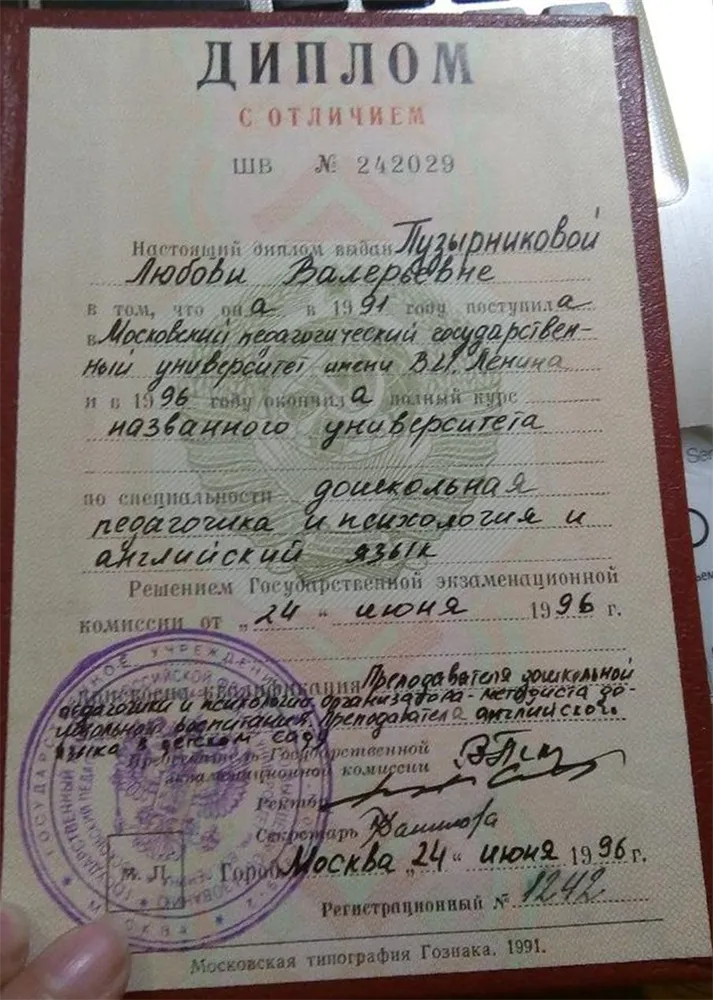 ДИПЛОМ
С ОТЛИЧИЕМ
ШВ № 242029
Настоящий диплом выдан Пузырниковой
Любови Валерьевне
в том, что она в 1991 году поступила
в Московский педагогический государствен-
ный университет имени В.И. Ленина
и в 1996 году окончила полный курс
названного университета
по специальности дошкольная
педагогика и психология и
английский язык
Решением Государственной экзаменационной
комиссии от „24“ июня 1996 г.
присвоена квалификация Преподавателя дошкольной
педагогики и психологии, организатора-методиста до-
школьного воспитания. Преподавателя английского
языка в детском саду
Председатель Государственной
экзаменационной комиссии
Ректор
Секретарь
М. П.
Город Москва „24“ июня 1996 г.
Регистрационный № 1242
Московская типография Гознака. 1991.
МОСКВА